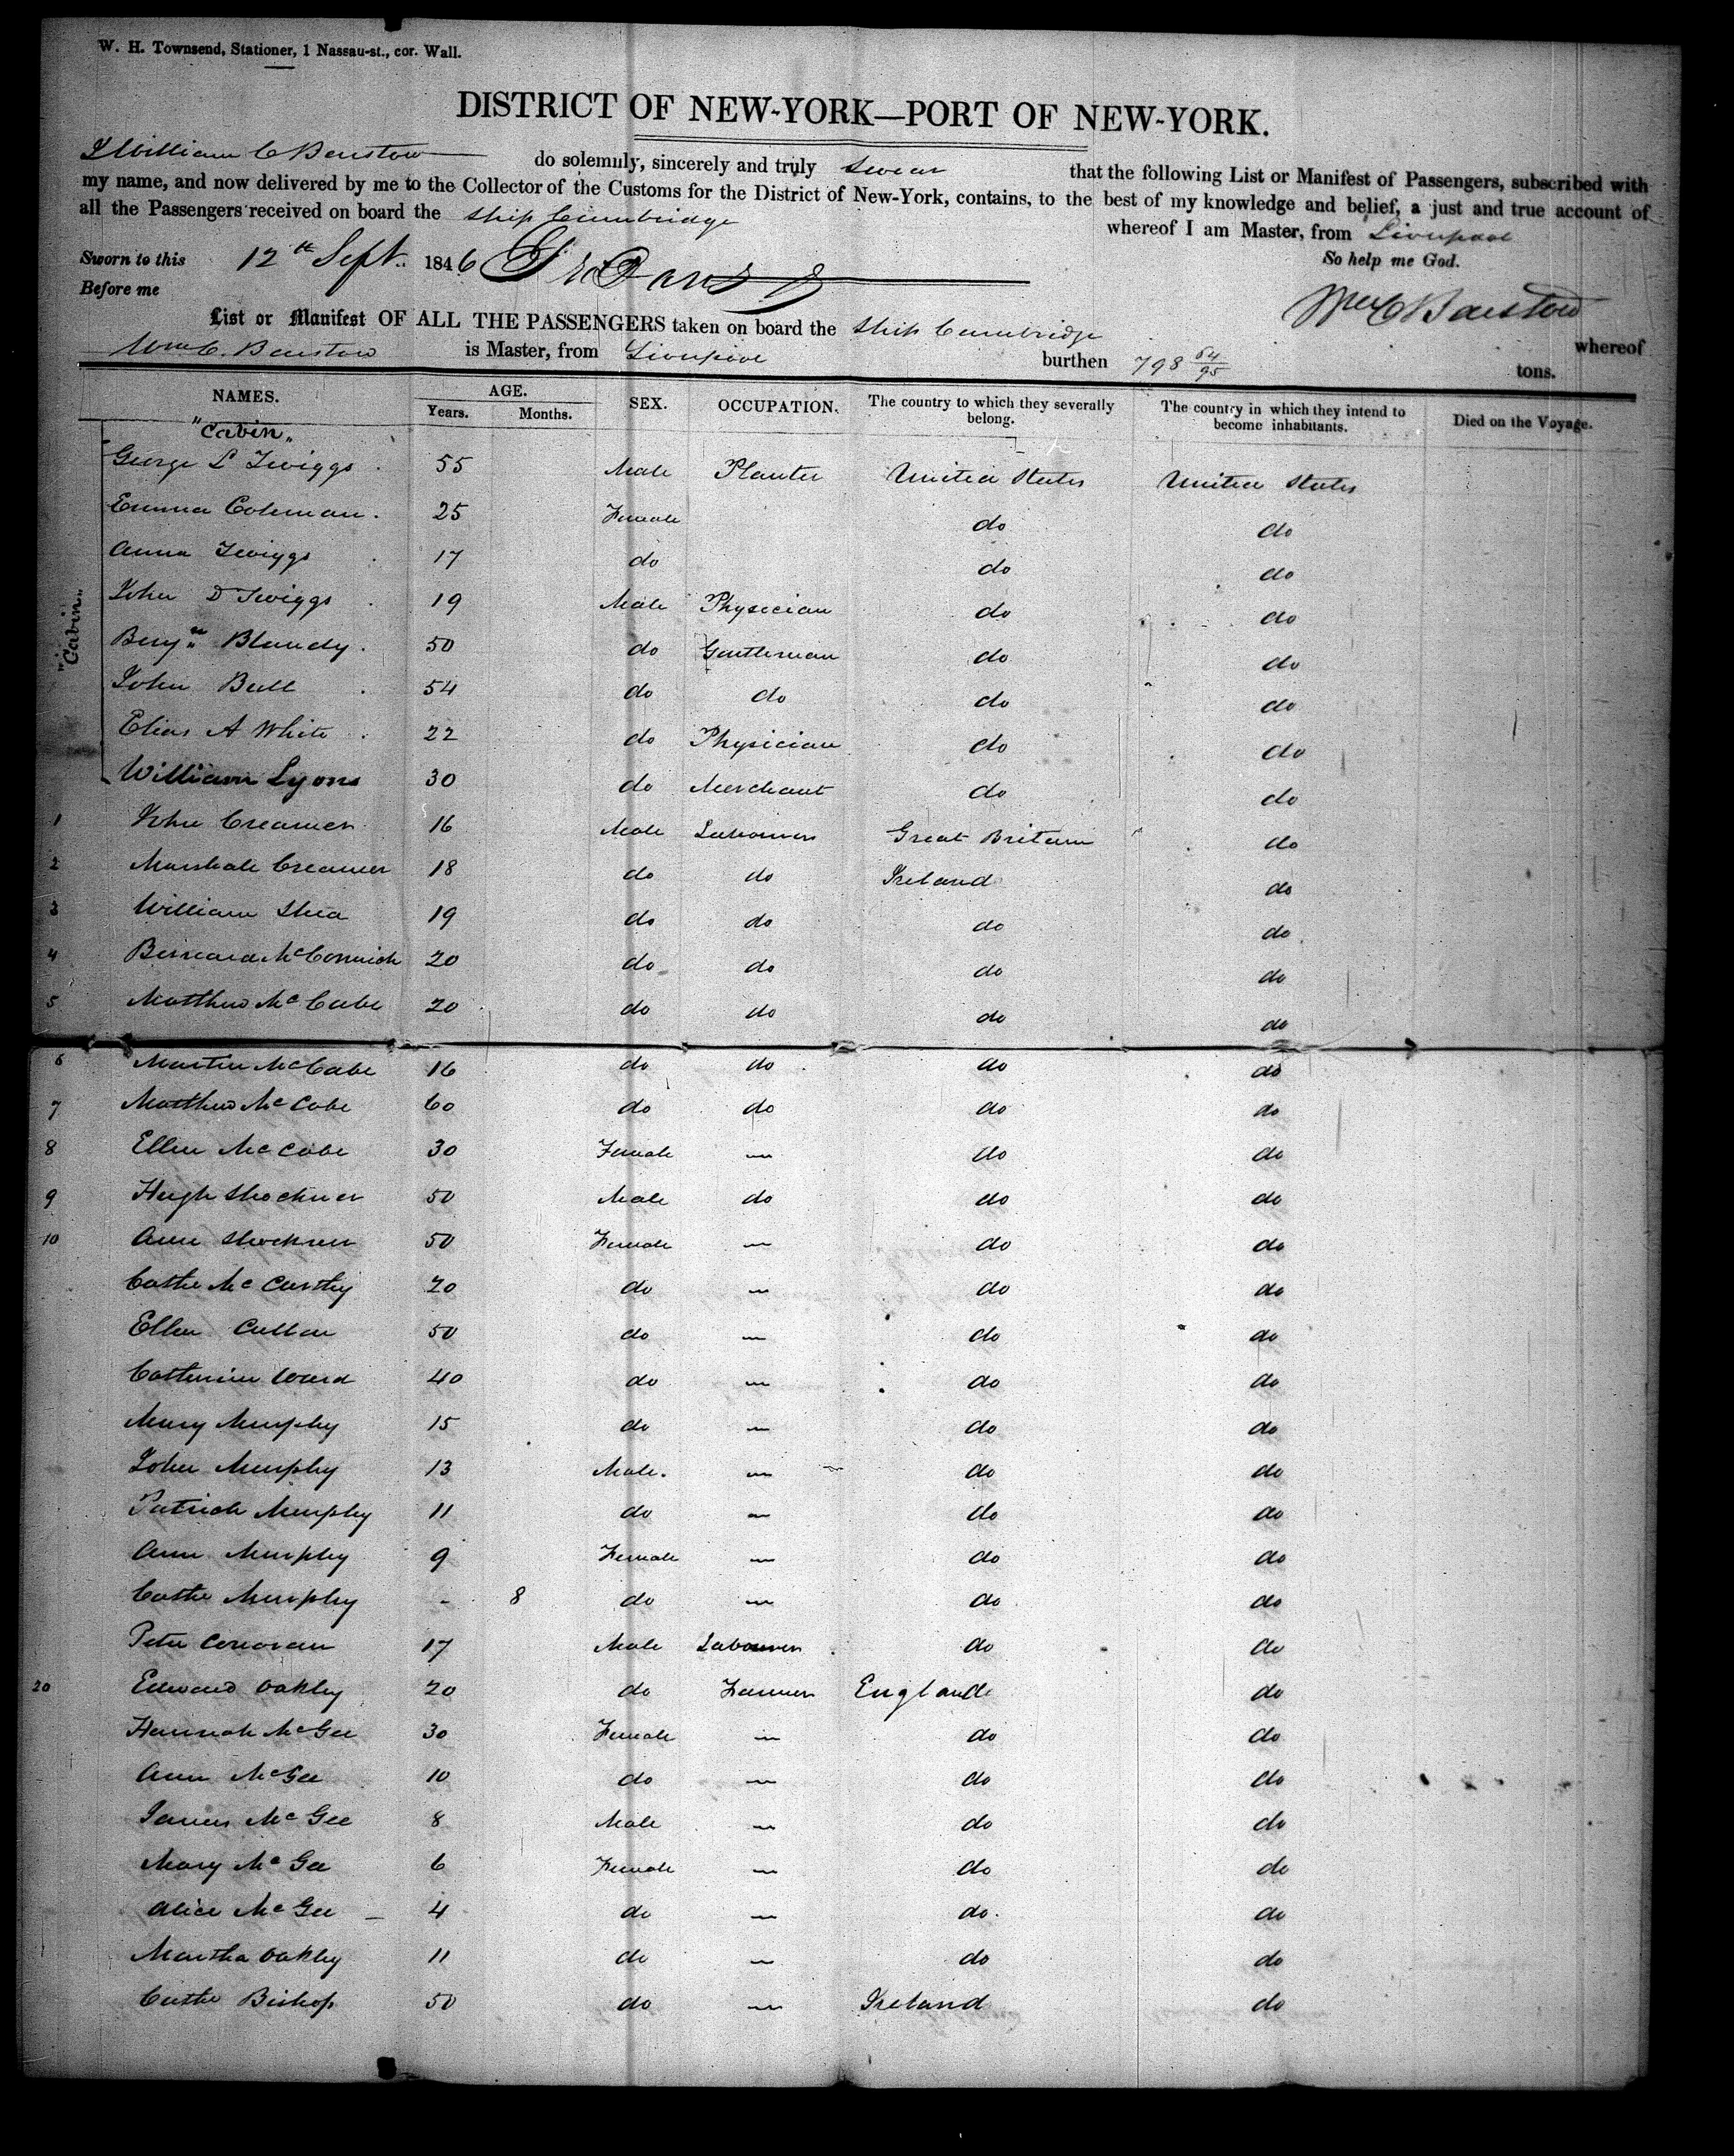 W. H. Townsend, Stationer, 1 Nassau-st., cor. Wall.
DISTRICT OF NEW-YORK—PORT OF NEW-YORK.
I William C Barstow do solemnly, sincerely and truly swear that the following List or Manifest of Passengers, subscribed with
my name, and now delivered by me to the Collector of the Customs for the District of New-York, contains, to the best of my knowledge and belief, a just and true account of
all the Passengers received on board the Ship Cambridge whereof I am Master, from Liverpool
Sworn to this 12th Sept. 1846 So help me God.
Before me Wm C Barstow
List or Manifest OF ALL THE PASSENGERS taken on board the Ship Cambridge whereof
Wm C. Barstow is Master, from Liverpool burthen 798 64/95 tons.
NAMES. AGE. SEX. OCCUPATION. The country to which they severally belong. The country in which they intend to become inhabitants. Died on the Voyage.
Years. Months.
"Cabin"
"Cabin"
George L Twiggs 55 Male Planter United States United States
Emma Coleman 25 Female do do
Anna Twiggs 17 do do do
John D Twiggs 19 Male Physician do do
Benjn Blandy 50 do Gentleman do do
John Bull 54 do do do do
Elias A White 22 do Physician do do
William Lyons 30 do Merchant do do
1 John Creamer 16 Male Labourer Great Britain do
2 Marshall Creamer 18 do do Ireland do
3 William Shea 19 do do do do
4 Bernard McCormick 20 do do do do
5 Matthew McCabe 20 do do do do
6 Martin McCabe 16 do do do do
7 Matthew McCabe 60 do do do do
8 Ellen McCabe 30 Female — do do
9 Hugh Shockner 50 Male do do do
10 Ann Shockner 50 Female — do do
Cathe McCarthy 20 do — do do
Ellen Cullan 50 do — do do
Catherine Ward 40 do — do do
Mary Murphy 15 do — do do
John Murphy 13 Male. — do do
Patrick Murphy 11 do — do do
Ann Murphy 9 Female — do do
Cathe Murphy - 8 do — do do
Peter Corcoran 17 Male Labourer do do
20 Edward Oakley 20 do Farmer England do
Hannah McGee 30 Female — do do
Ann McGee 10 do — do do
James McGee 8 Male — do do
Mary McGee 6 Female — do do
Alice McGee 4 do — do. do
Martha Oakley 11 do — do do
Cathe Bishop 50 do — Ireland do